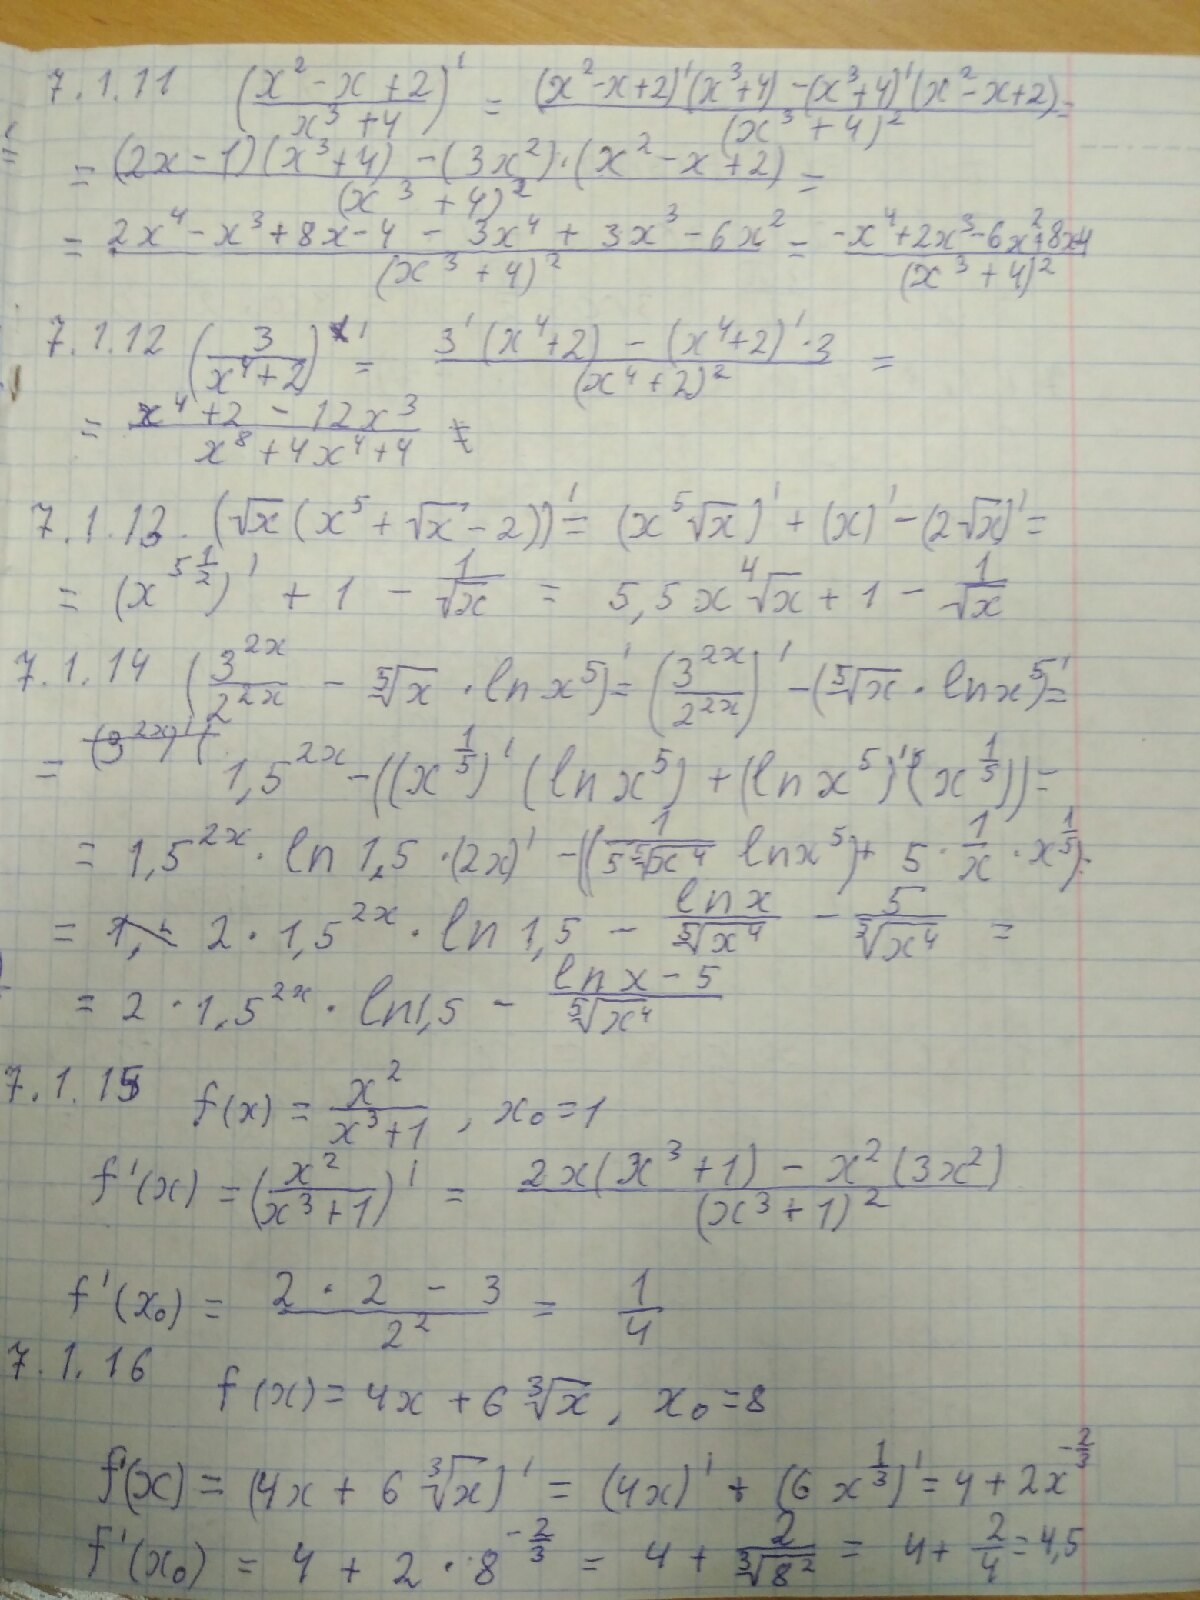 7.1.11 ((x² - x + 2)/(x³ + 4))' = ((x² - x + 2)'(x³ + 4) - (x³ + 4)'(x² - x + 2))/(x³ + 4)² =
= ((2x - 1)(x³ + 4) - (3x²)·(x² - x + 2))/(x³ + 4)² =
= (2x⁴ - x³ + 8x - 4 - 3x⁴ + 3x³ - 6x²)/(x³ + 4)² = (-x⁴ + 2x³ - 6x² + 8x - 4)/(x³ + 4)²
7.1.12 (3/(x⁴ + 2))' = (3'(x⁴ + 2) - (x⁴ + 2)'·3)/(x⁴ + 2)² =
= (x⁴ + 2 - 12x³)/(x⁸ + 4x⁴ + 4)
7.1.13. (√x (x⁵ + √x - 2))' = (x⁵√x)' + (x)' - (2√x)' =
= (x^(5 1/2))' + 1 - 1/√x = 5,5x⁴√x + 1 - 1/√x
7.1.14 (3^(2x)/2^(2x) - ⁵√x · ln x⁵)' = (3^(2x)/2^(2x))' - (⁵√x · ln x⁵)' =
= 1,5^(2x) - ((x^(1/5))' (ln x⁵) + (ln x⁵)' (x^(1/5))) =
= 1,5^(2x) · ln 1,5 · (2x)' - ((1/(5 ⁵√x⁴) ln x⁵) + 5 · 1/x · x^(1/5)) =
= 2 · 1,5^(2x) · ln 1,5 - ln x/⁵√x⁴ - 5/⁵√x⁴ =
= 2 · 1,5^(2x) · ln 1,5 - (ln x - 5)/⁵√x⁴
7.1.15 f(x) = x²/(x³ + 1), x₀ = 1
f'(x) = (x²/(x³ + 1))' = (2x(x³ + 1) - x²(3x²))/(x³ + 1)²
f'(x₀) = (2 · 2 - 3)/2² = 1/4
7.1.16 f(x) = 4x + 6 ³√x, x₀ = 8
f'(x) = (4x + 6 ³√x)' = (4x)' + (6 x^(1/3))' = 4 + 2x^(-2/3)
f'(x₀) = 4 + 2 · 8^(-2/3) = 4 + 2/³√8² = 4 + 2/4 = 4,5